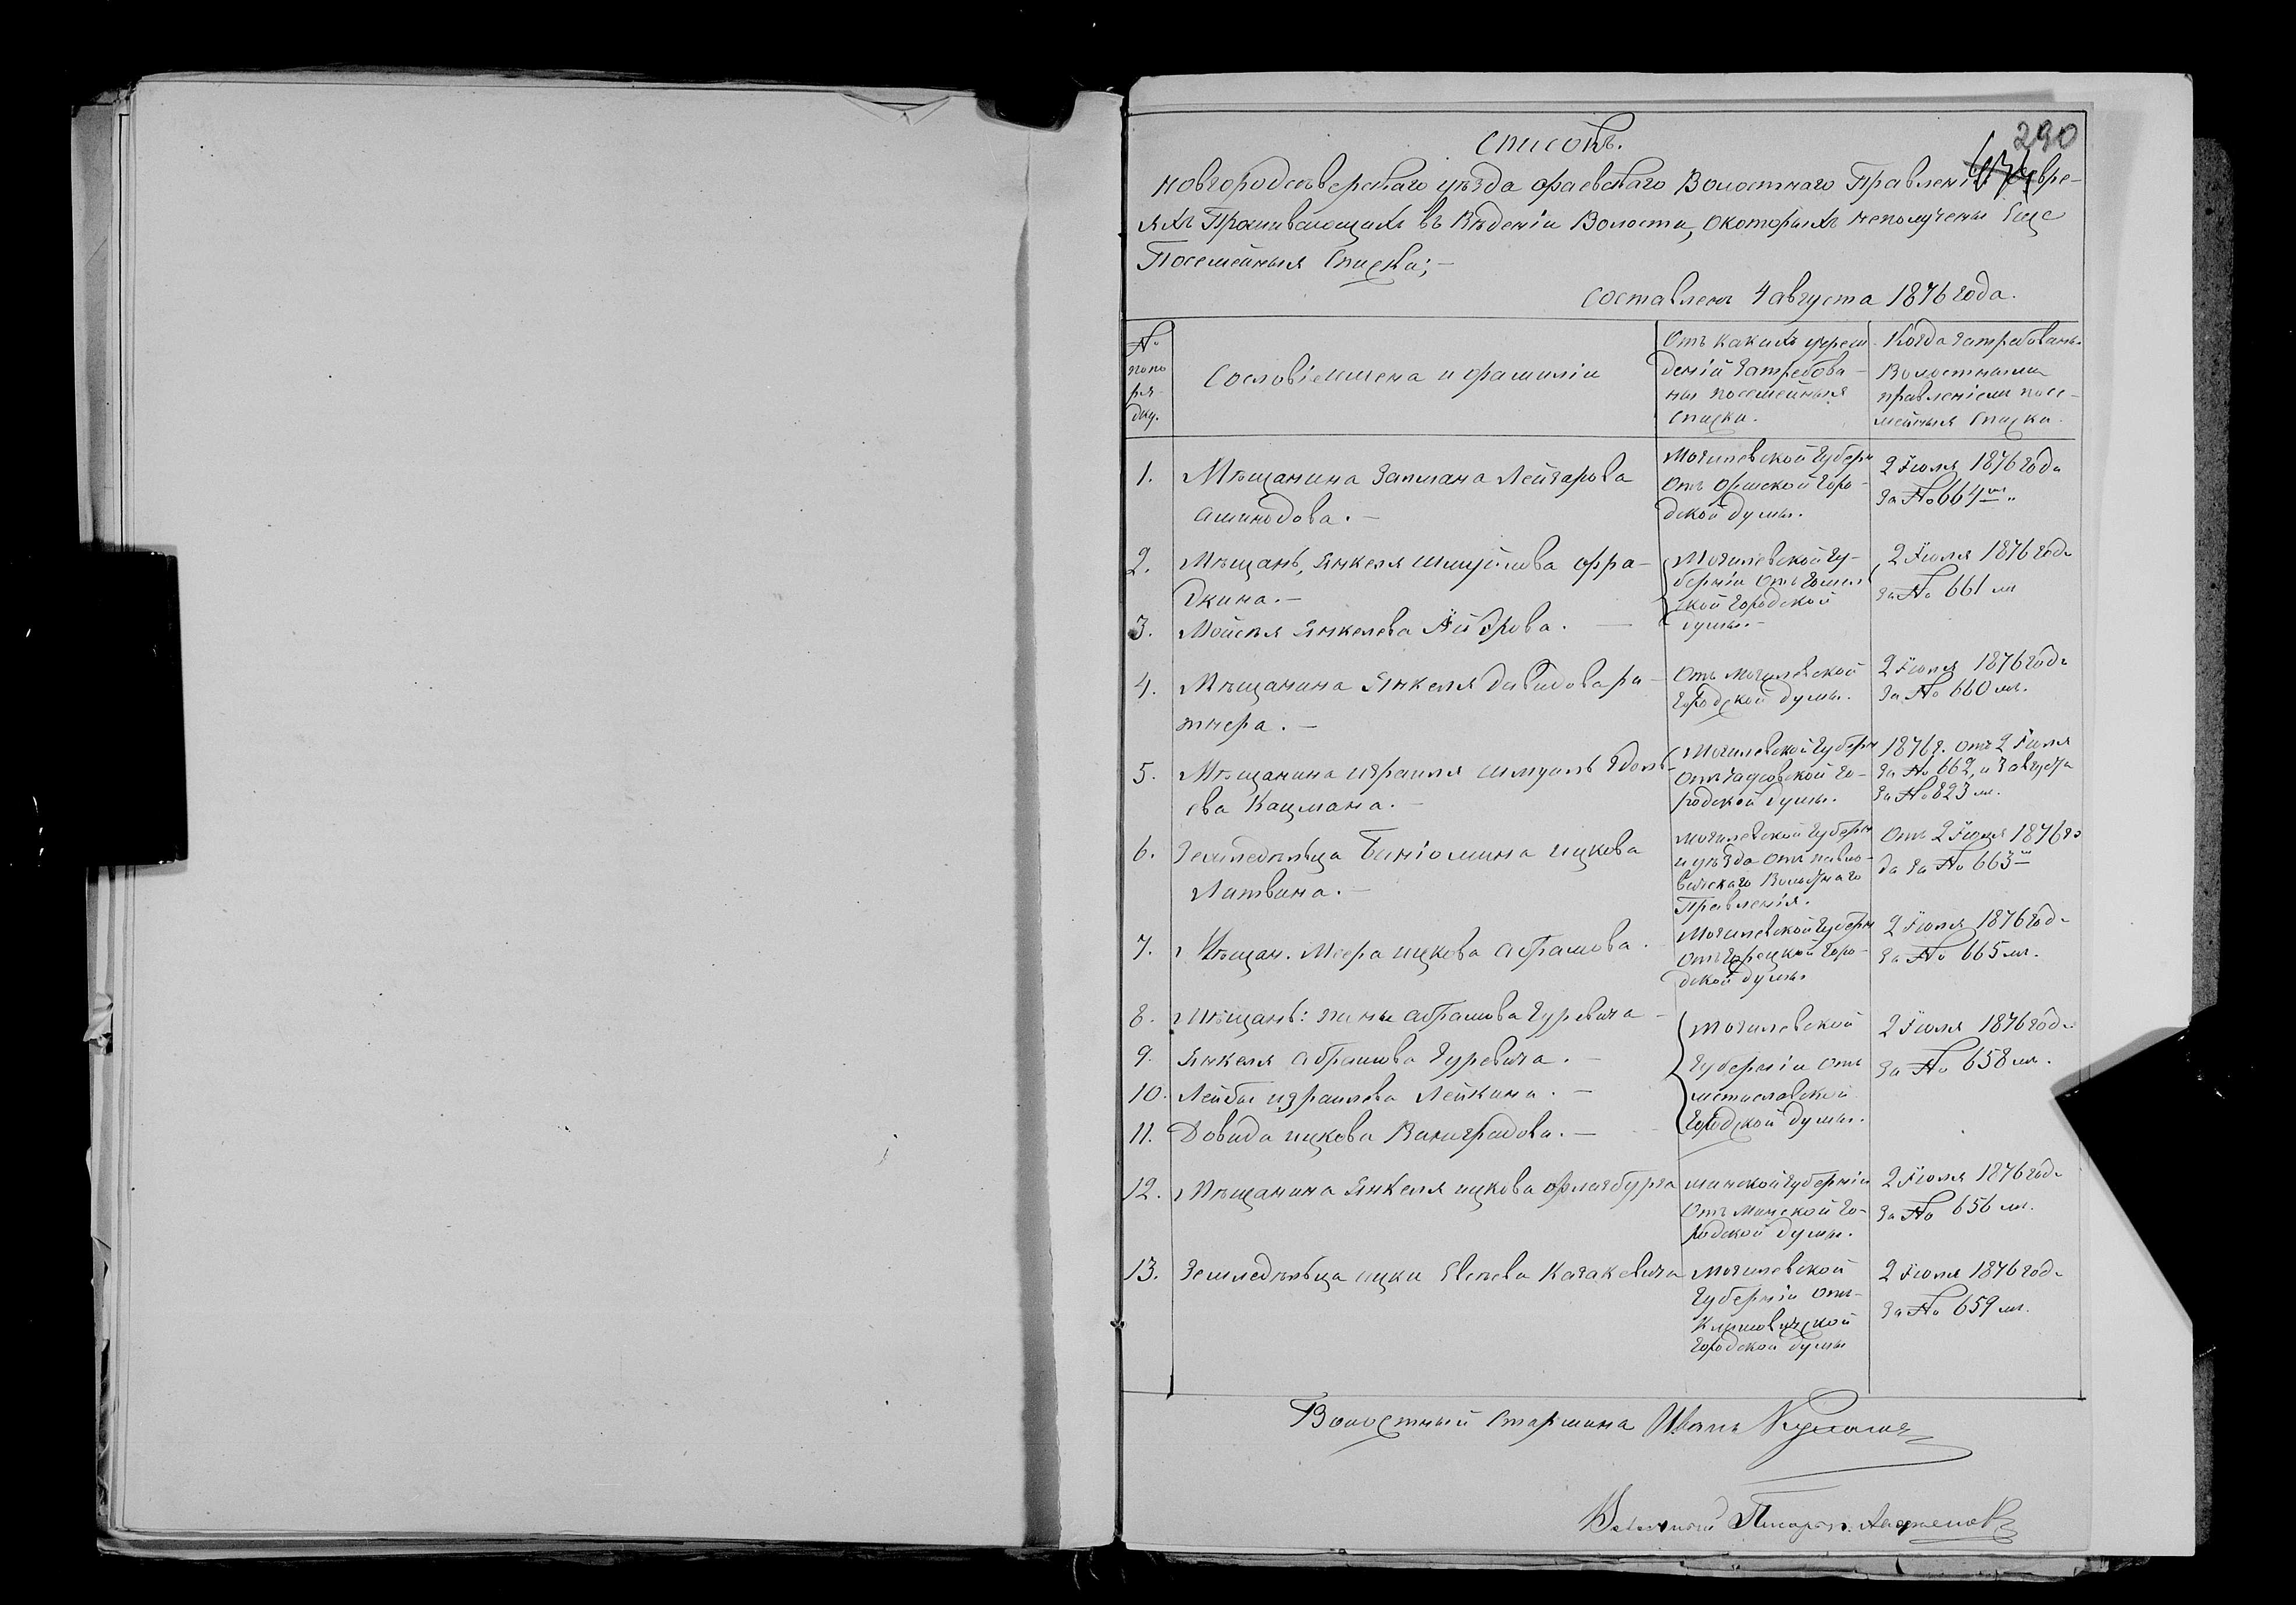 290
Списокъ.
Новгородсѣверскаго уѣзда Фаевскаго Волостнаго Правленія о Евре-
яхъ Проживающихъ въ Вѣденіи Волости, о которыхъ неполучены Еще
Посемейныя Списки;-
Составленъ 4 августа 1876 года.
№
по по
ря-
дку.
Сословіе имена и фамиліи
Отъ какихъ учреж
деній затребова-
ны посемейныя
списки.
Когда затребованы
Волостнымъ
правленіемъ посе-
мейныя Списки.
1. Мѣщанина Залмана Лейзарова
Аминодова.-
Могилевской Губерн
Отъ Оршской Горо-
дской думы.
2 Іюля 1876 года
за № 664
2. Мѣщанъ, Янкеля Шмуйлова Фра-
дкина.-
3. Мойсѣя Янкелева
Могилевской Гу-
берніи Отъ Гомел
ской Городской
думы.-
2 Іюля 1876 года
за № 661 мъ
4. Мѣщанина Янкеля Давидова Ра-
тнера.-
Отъ Могилевской
Городской думы.
2 Іюля 1876 года
за № 660 мъ.
5. Мѣщанина Израиля Шмуиль
ева Кацмана.-
Могилевской Губерн
Отъ Чаусовской Го-
родской думы.
1876 г. отъ 2 Іюля
за № 662, и 3 августа
за № 823 мъ.
6. Земледѣльца Беніомина Ицкова
Латвина.-
Могилевской Губерн
и уѣзда отъ Павло-
вичскаго Волостнаго
Правленія.
Отъ 2 Іюля 1876 го
да за № 663
7. Мѣщан. Меера Ицкова Абрамова.
Могилевской Губерн
Отъ Горецкой Горо-
дской думы.
2 Іюля 1876 года
за № 665 мъ.
8. Мѣщанъ: Абрамова Гуревича
9. Янкеля Абрамова Гуревича.-
10. Лейбы Израилева Лейкина.-
11. Довида Ицкова Виноградова.-
Могилевской
Губерніи Отъ
Мстиславской
Городской думы.
2 Іюля 1876 года
за № 658 мъ.
12. Мѣщанина Янкеля Ицкова
Минской Губерніи
Отъ Минской Го-
родской думы.
2 Іюля 1876 года
за № 656 мъ.
13. Земледѣльца Ицки
Могилевской
Губерніи отъ
Климовичской
Городской думы
2 Іюля 1876 года
за № 659 мъ.
Волостный Старшина Иванъ
Волостной Писарь